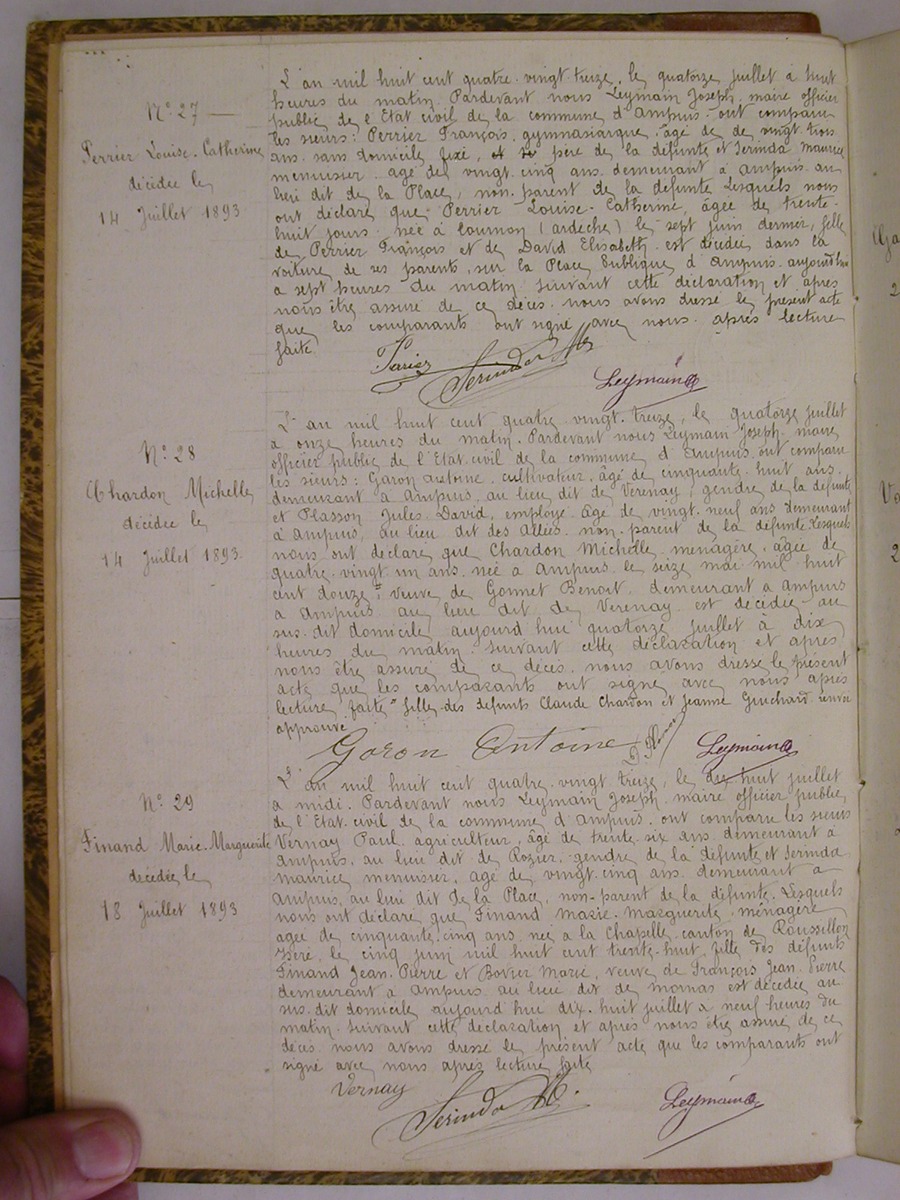 N° 27
Perrier Louise-Catherine
décédée le
14 Juillet 1893
L'an mil huit cent quatre-vingt-treize, le quatorze juillet à huit
heures du matin. Pardevant nous Leymain Joseph, maire officier
public de l'Etat civil de la commune d'Ampuis ont comparu
les sieurs: Perrier François, gymnasiarque, âgé de de vingt trois
ans sans domicile fixé, père de la défunte et Serinda Maurice
menuisier âgé de vingt-cinq ans demeurant à Ampuis au
lieu dit de la Place, non-parent de la défunte. Lesquels nous
ont déclaré que Perrier Louise-Catherine, âgée de trente-
huit jours née à Cournon (ardèche) le sept juin dernier, fille
de Perrier François et de David Elisabeth est décédée dans la
voiture de ses parents, sur la Place Publique d'Ampuis aujourd'hui
à sept heures du matin suivant cette déclaration et après
nous être assuré de ce décès nous avons dressé le présent acte
que les comparants ont signé avec nous après lecture
faite.
Serinda M
Leymain
N° 28
Chardon Michelle
décédée le
14 Juillet 1893.
L'an mil huit cent quatre vingt-treize, le quatorze juillet
à onze heures du matin. Pardevant nous Leymain Joseph maire
officier public de l'Etat civil de la commune d'Ampuis ont comparu
les sieurs: Garon Antoine cultivateur, âgé de cinquante-huit ans
demeurant à Ampuis, au lieu dit de Verenay, gendre de la défunte
et Plasson Jules-David, employé âgé de vingt-neuf ans demeurant
à Ampuis, au lieu dit des Allées non-parent de la défunte. Lesquels
nous ont déclaré que Chardon Michelle ménagère, âgée de
quatre-vingt un ans née à Ampuis le seize mai mil huit
cent douze veuve de Gonnet Benoit demeurant à Ampuis
à Ampuis au lieu dit de Verenay est décédée au
sus-dit domicile aujourd'hui quatorze juillet à dix
heures du matin suivant cette déclaration et après
nous être assuré de ce décès nous avons dressé le présent
acte que les comparants ont signé avec nous après
lecture faite " fille des défunts Claude Chardon et Jeanne Guichard
approuvé
Garon Antoine
Leymain
N° 29
Finand Marie-Marguerite
décédée le
18 Juillet 1893
L'an mil huit cent quatre-vingt treize, le dix huit juillet
à midi. Pardevant nous Leymain Joseph maire officier public
de l'Etat-civil de la commune d'Ampuis ont comparu les sieurs
Vernay Paul agriculteur, âgé de trente-six ans demeurant à
Ampuis, au lieu dit de Rozier, gendre de la défunte et Serinda
Maurice menuisier, âgé de vingt-cinq ans demeurant à
Ampuis, au lieu dit de la Place, non-parent de la défunte. Lesquels
nous ont déclaré que Finand Marie-Marguerite ménagère
âgée de cinquante cinq ans, née à la Chapelle canton de Roussillon
Isère, le cinq juin mil huit cent trente-huit fille des défunts
Finand Jean-Pierre et Bovier Marie, veuve de François Jean-Pierre
demeurant à Ampuis au lieu dit de mornas est décédée au
sus-dit domicile aujourd'hui dix-huit juillet à neuf heures du
matin suivant cette déclaration et après nous être assuré de ce
décès nous avons dressé le présent acte que les comparants ont
signé avec nous après lecture faite
Vernay
Serinda M.
Leymain